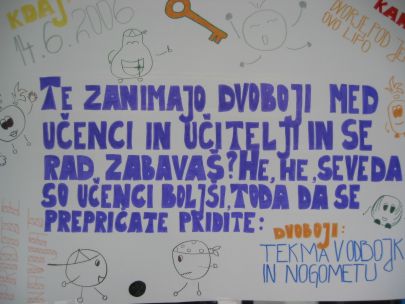 KDAJ
14.6.2006
DVORJE POD
OVO LIPO
TE ZANIMAJO DVOBOJI MED
UČENCI IN UČITELJI IN SE
RAD ZABAVAŠ? HE, HE, SEVEDA
SO UČENCI BOLJŠI, TODA DA SE
PREPRIČATE PRIDITE:
DVOBOJI:
TEKMA V ODBOJK
IN NOGOMETU
PRIDITE